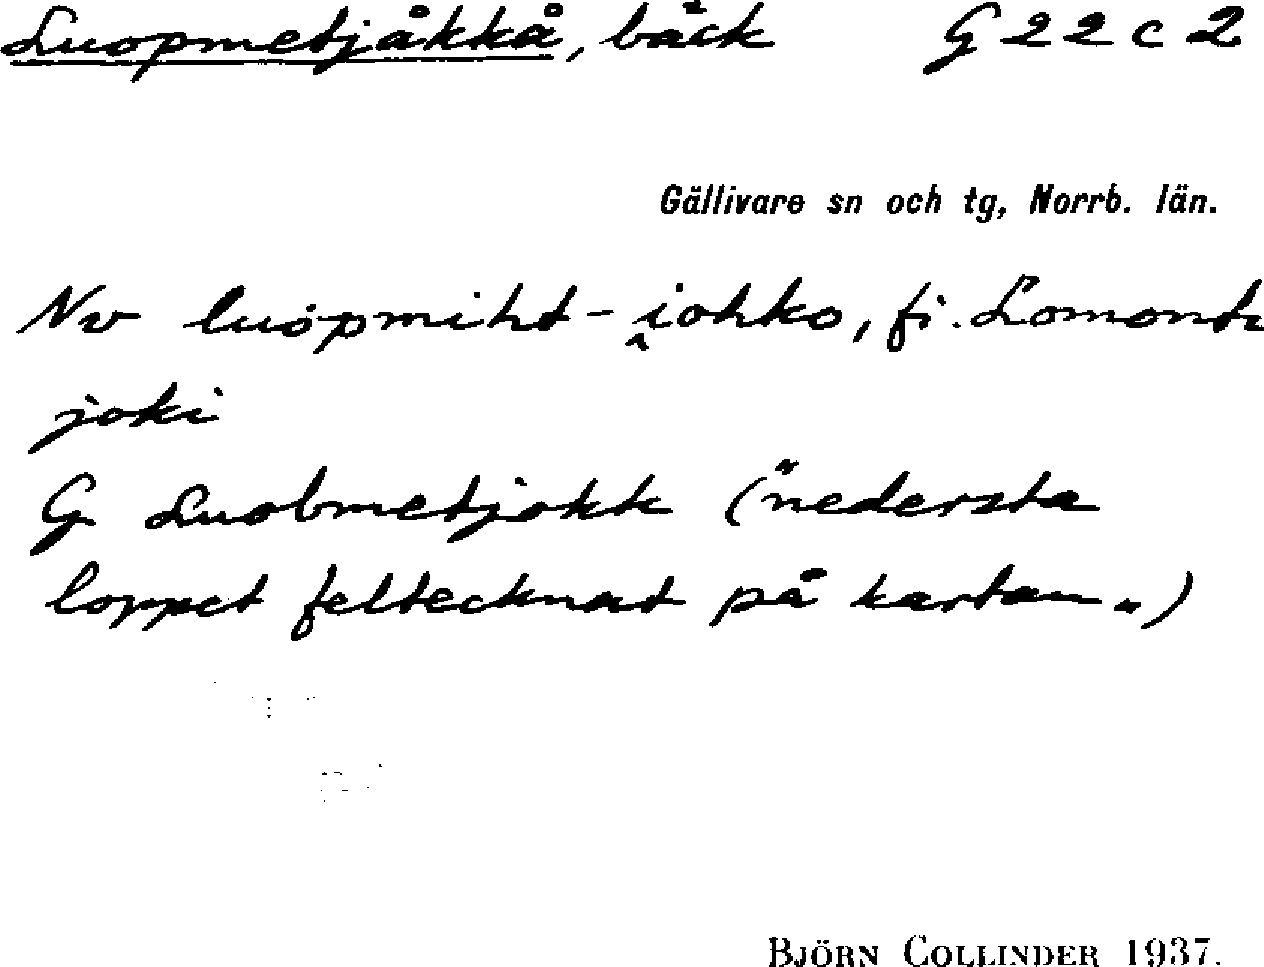 Luopmetjåkkå, bäck G 22 c 2
Gällivare sn och tg, Norrb. län.
Nv luȯpmiht-i̭ohko, fi. Lomont
joki
G Luobmetjokk ("nedersta
loppet feltecknat på kartan")
BJÖRN COLLINDER 1937.